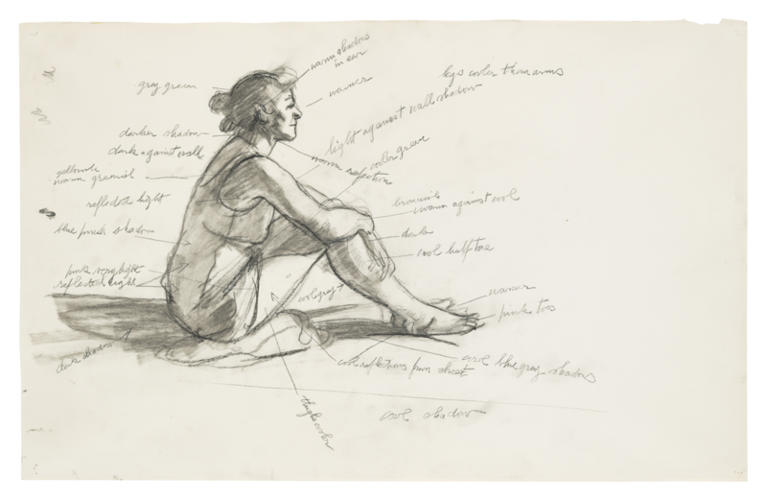 warm shadows
in ear
grey green
warmer
legs cooler than arms
darker shadow
dark against wall
light against wall shadow
cooler
warm reflections
warm greenish
reflected light
warm against cool
blue pink shadow
dark
cool half tone
pink very light
reflected light
cool gray
warmer
pink toes
dark shadow
cool reflections from sheet
cool blue gray shadows
thigh cooler
cool shadow